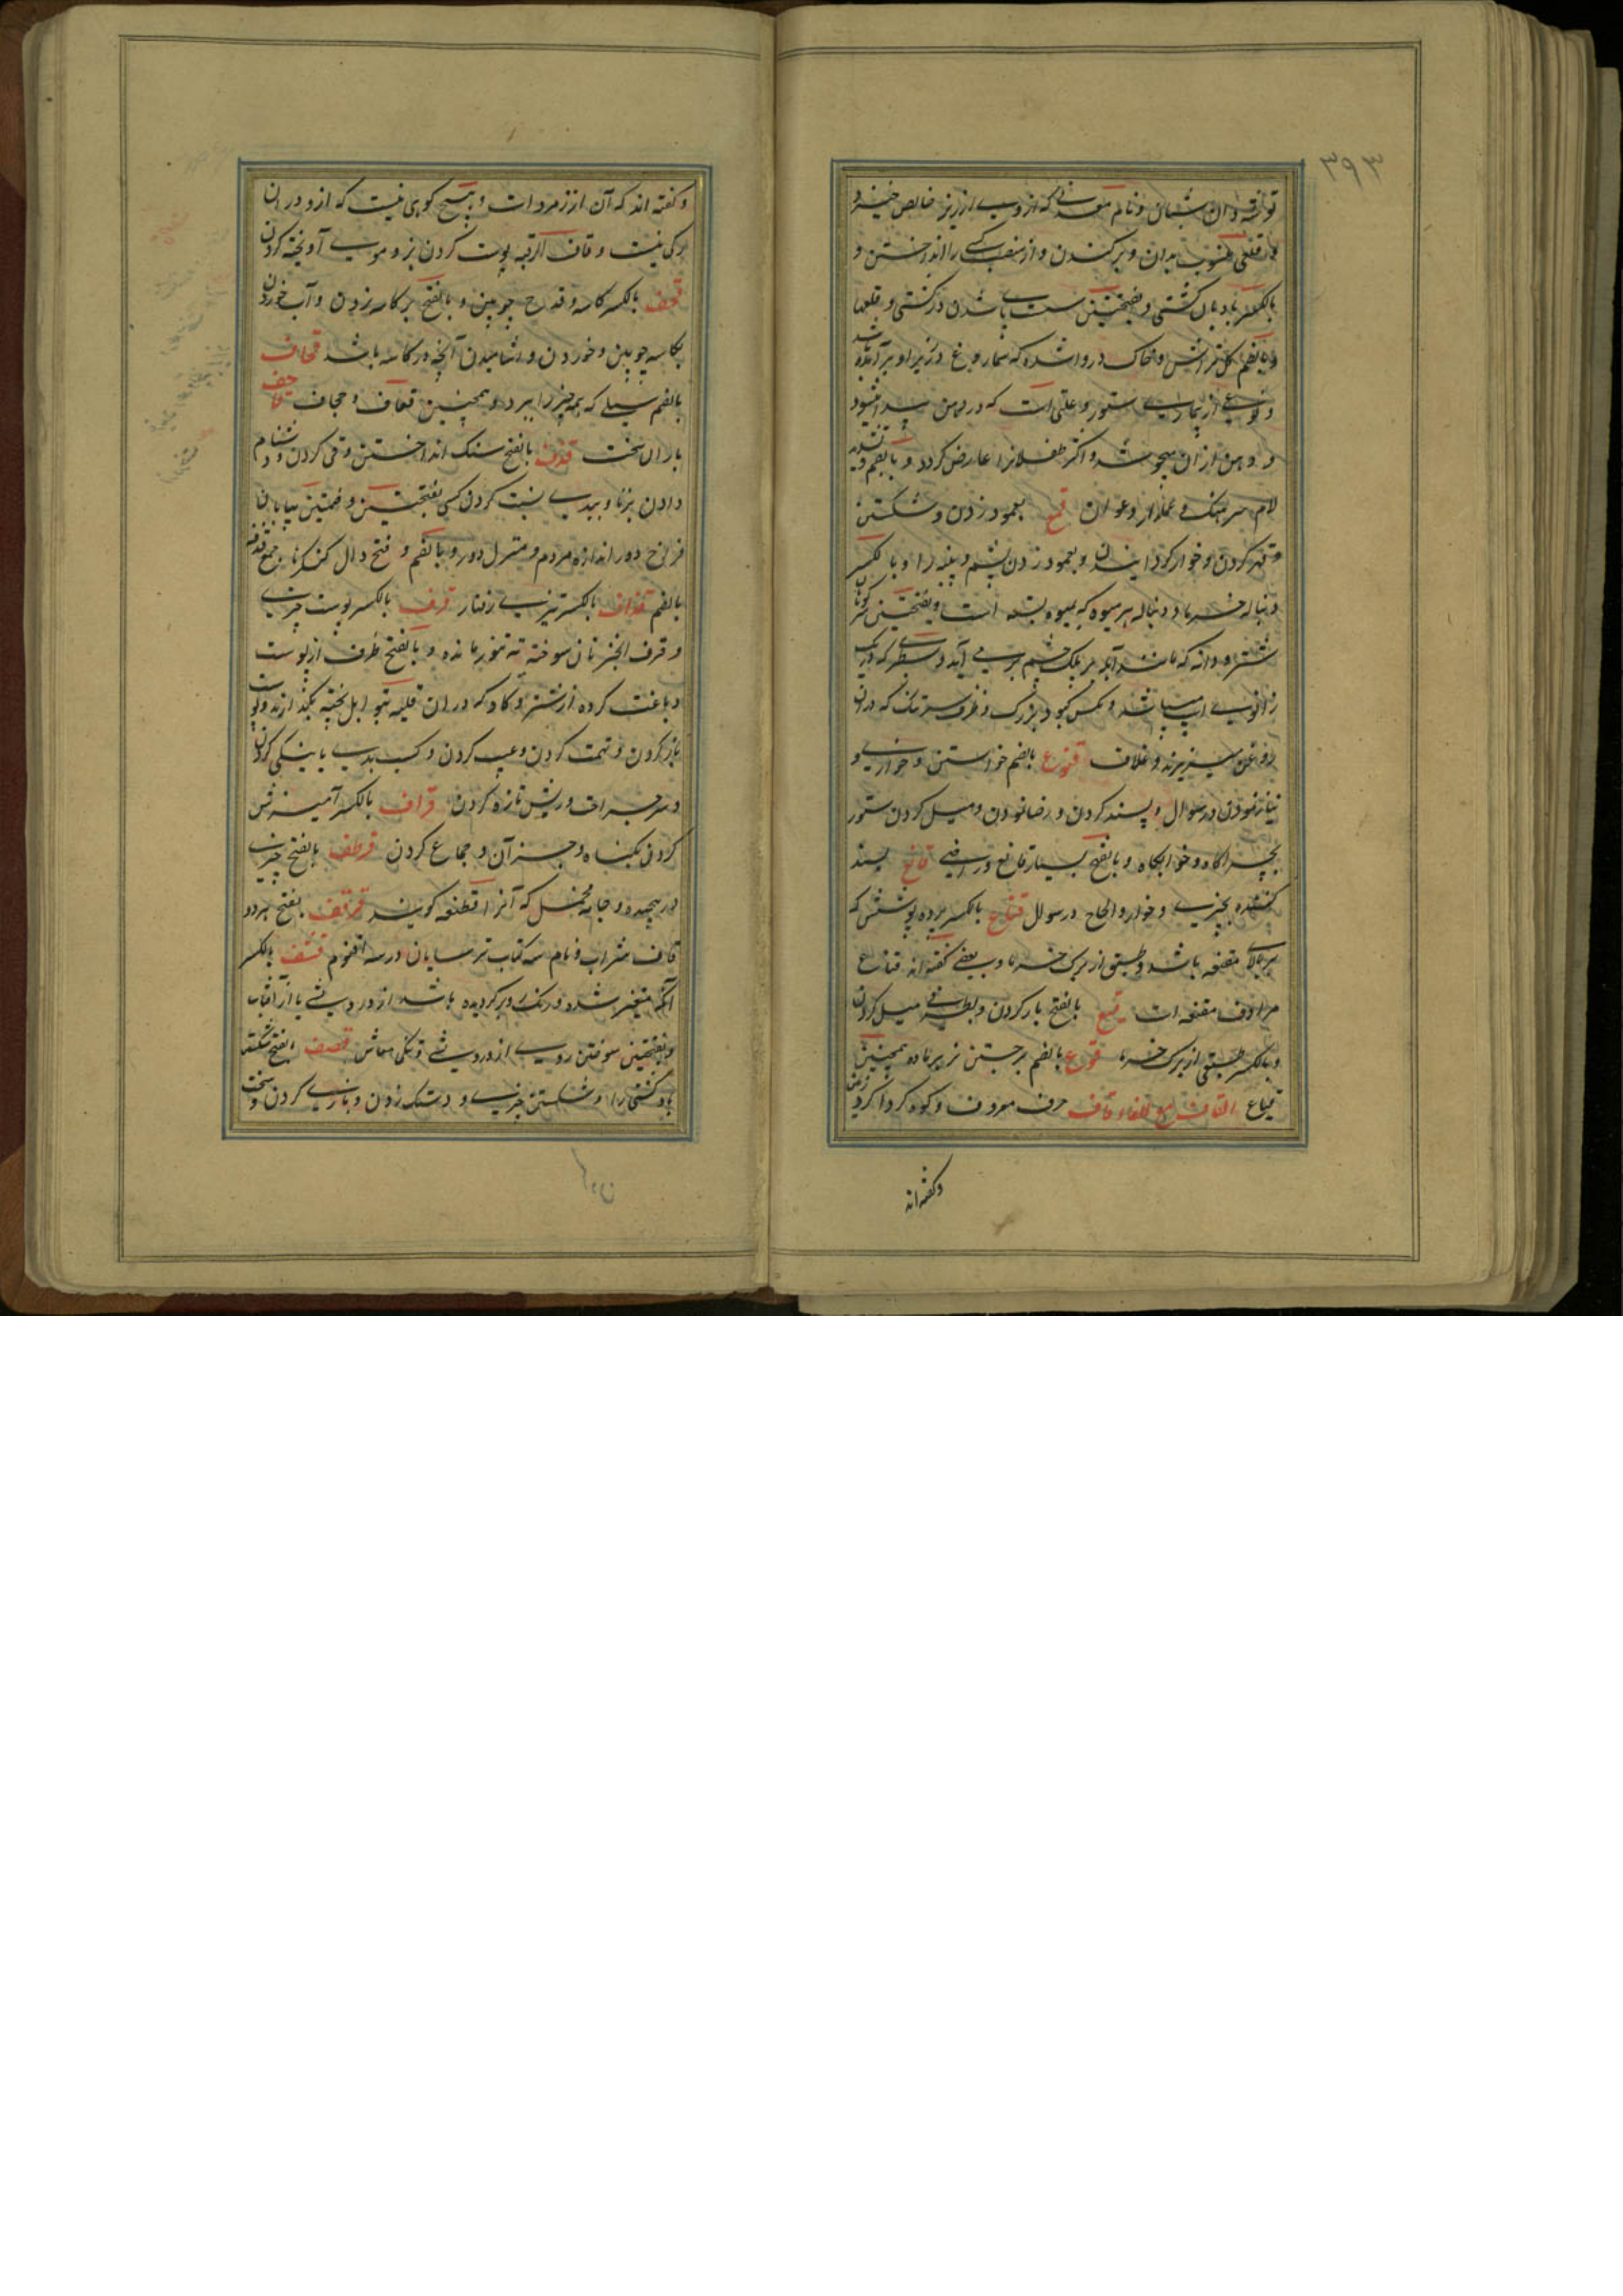 ۳۹۳
توشه دان شبان و نام معدنی که از وی ارزیز خالص خیزد و
قلعی منسوب بدان و برکندن و از منصب کسی را انداختن و
بالکسر بادبان کشتی و بفتحتین سست پا شدن در کشتی و
بالضم گل تراش و خاک درو شده که سماروغ در زیر او برآید
و نوعی از بیماری ستور و علتی است که در دهن پیدا میشود
و دهن از آن بجوشد و اکثر طفلانرا عارض گردد و بالضم و تشدید
لام سرهنگ و عملدار و عوان قمع بعمود زدن و شکستن
و قهر کردن و خوار کردانیدن و بعمود زدن پشم و پنبه را و بالکسر
دنباله خرما و دنباله هر میوه که بمیوه بسته است و بفتحتین کوهان
شتر و دانه که مانند آبله بر پلک چشم برمی آید و سطبری که در یک
زانوی اسپ باشد و مکس کبود بزرگ و ظرف سرتنگ که در ان
روغن میریزند و غلاف قنوع بالضم خواستن و خواری و
نیاز نمودن در سوال و پسند کردن و رضا نمودن و میل کردن ستور
بچراگاه و خوابگاه و بالفتح بسیار قانع و راضی قانع پسند
کننده بچیزی و خوار و الحاح در سوال قناع بالکسر پرده پوشش که
بر بالای مقنعه باشد و طبق از برگ خرما و بعضی گفته اند قناع
مرادف مقنعه است قبع بالفتح بار کردن و بطرفی میل کردن
و بالکسر طبقی از برگ خرما قوع بالضم برجستن نر بر ماده همچنین
قیاع القاف مع الفاء قاف حرف معروف و کوه گردا گرد زمین
وگفته اند
و گفته اند که آن از زمرد است و هیچ کوهی نیست که ازو در ان
رگی نیست و قاف الرقبه پوست گردن بز و موی آویخته گردن
قحف بالکسر کاسه و قدح چوبین و بالفتح بر کاسه زدن و آب خوردن
بکاسه چوبین و خوردن و اشامیدن آنچه در کاسه باشد قحاف
بالضم سیلی که همه چیز را ببرد و همچنین قعاف و جحاف قاحف
باران سخت قذف بالفتح سنگ انداختن و قی کردن و دشنام
دادن بزنا و ببدی نسبت کردن کسی بفتحتین و ضمتین بیابان
فراخ دور اندازه مردم و منزل دور و بالضم و فتح دال کنکرها جمع قذفه
بالضم قذاف بالکسر تیزی رفتار قرف بالکسر پوست چیزی
و قرف الخبز نان سوخته ته تنور مانده و بالفتح ظرف از پوست
دباغت کرده از شتر و گاو که در ان قلیه بتوابل پخته نگهدارند و پوست
باز کردن و تهمت کردن و عیب کردن و کسب بدی یا نیکی کردن
و سر جراحت و ریش تازه کردن قراف بالکسر آمیزش
کردن بگناه و جز آن و جماع کردن قرطف بالفتح چیزی
در پیچیده و جامه مخمل که آنرا قطیفه گویند قرقف بفتح هر دو
قاف شراب و نام سه کتاب ترسایان در سه اقنوم قشف بالکسر
آنکه متغیر شده و رنگ روبر گردیده باشد از درویشی یا از آفتاب
و بفتحتین سوختن روی از درویشی و تنگی معاش قصف بالفتح شکستن
باد کشتی را و شکستن چیزی و دستک زدن و بازی کردن و سخت
کردن